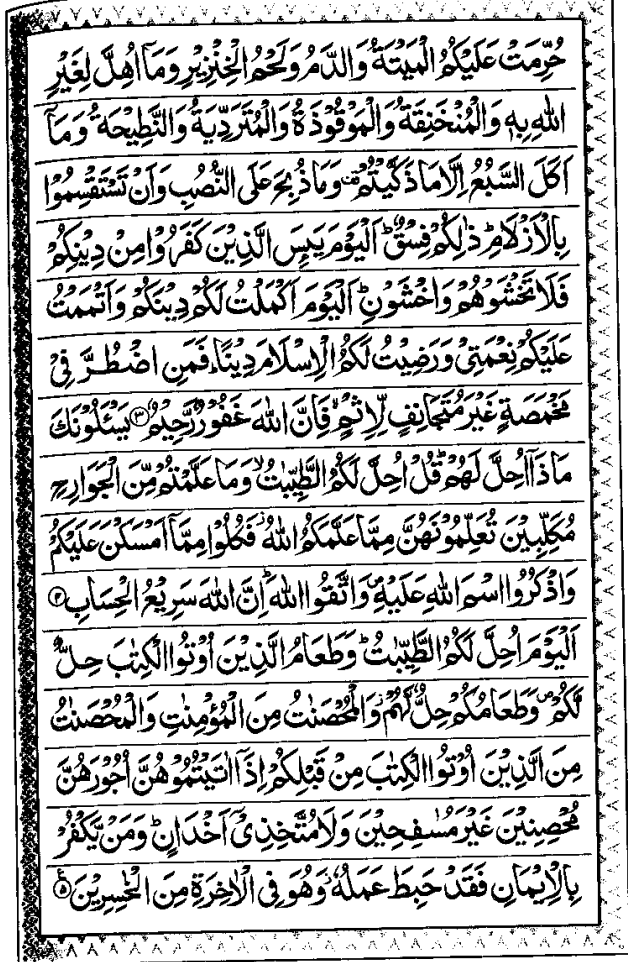 حُرِّمَتْ عَلَيْكُمُ الْمَيْتَةُ وَالدَّمُ وَلَحْمُ الْخِنْزِيْرِ وَمَاۤ اُهِلَّ لِغَيْرِ
اللهِ بِهٖ وَالْمُنْخَنِقَةُ وَالْمَوْقُوْذَةُ وَالْمُتَرَدِّيَةُ وَالنَّطِيْحَةُ وَمَاۤ
اَكَلَ السَّبُعُ اِلَّا مَا ذَكَّيْتُمْ ۫ وَمَا ذُبِحَ عَلَى النُّصُبِ وَاَنْ تَسْتَقْسِمُوْا
بِالْاَزْلَامِ ؕ ذٰلِكُمْ فِسْقٌ ؕ اَلْيَوْمَ يَىِٕسَ الَّذِيْنَ كَفَرُوْا مِنْ دِيْنِكُمْ
فَلَا تَخْشَوْهُمْ وَاخْشَوْنِ ؕ اَلْيَوْمَ اَكْمَلْتُ لَكُمْ دِيْنَكُمْ وَاَتْمَمْتُ
عَلَيْكُمْ نِعْمَتِيْ وَرَضِيْتُ لَكُمُ الْاِسْلَامَ دِيْنًا ؕ فَمَنِ اضْطُرَّ فِيْ
مَخْمَصَةٍ غَيْرَ مُتَجَانِفٍ لِّاِثْمٍ ۙ فَاِنَّ اللهَ غَفُوْرٌ رَّحِيْمٌ ۝۳ يَسْـَٔلُوْنَكَ
مَاذَاۤ اُحِلَّ لَهُمْ ؕ قُلْ اُحِلَّ لَكُمُ الطَّيِّبٰتُ ۙ وَمَا عَلَّمْتُمْ مِّنَ الْجَوَارِحِ
مُكَلِّبِيْنَ تُعَلِّمُوْنَهُنَّ مِمَّا عَلَّمَكُمُ اللهُ ؗ فَكُلُوْا مِمَّاۤ اَمْسَكْنَ عَلَيْكُمْ
وَاذْكُرُوا اسْمَ اللهِ عَلَيْهِ ۪ وَاتَّقُوا اللهَ ؕ اِنَّ اللهَ سَرِيْعُ الْحِسَابِ ۝۴
اَلْيَوْمَ اُحِلَّ لَكُمُ الطَّيِّبٰتُ ؕ وَطَعَامُ الَّذِيْنَ اُوْتُوا الْكِتٰبَ حِلٌّ
لَّكُمْ ۪ وَطَعَامُكُمْ حِلٌّ لَّهُمْ ؗ وَالْمُحْصَنٰتُ مِنَ الْمُؤْمِنٰتِ وَالْمُحْصَنٰتُ
مِنَ الَّذِيْنَ اُوْتُوا الْكِتٰبَ مِنْ قَبْلِكُمْ اِذَاۤ اٰتَيْتُمُوْهُنَّ اُجُوْرَهُنَّ
مُحْصِنِيْنَ غَيْرَ مُسٰفِحِيْنَ وَلَا مُتَّخِذِيْۤ اَخْدَانٍ ؕ وَمَنْ يَّكْفُرْ
بِالْاِيْمَانِ فَقَدْ حَبِطَ عَمَلُهٗ ؗ وَهُوَ فِي الْاٰخِرَةِ مِنَ الْخٰسِرِيْنَ ۝۵